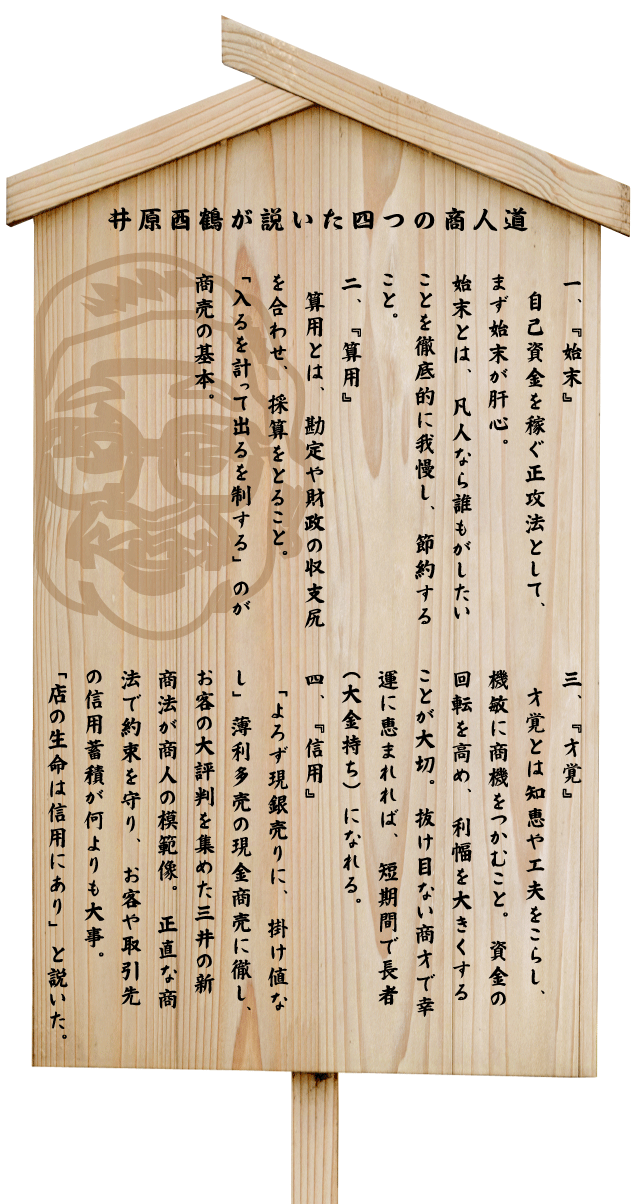 井原西鶴が説いた四つの商人道
一、『始末』
自己資金を稼ぐ正攻法として、
まず始末が肝心。
始末とは、凡人なら誰もがしたい
ことを徹底的に我慢し、節約する
こと。
二、『算用』
算用とは、勘定や財政の収支尻
を合わせ、採算をとること。
「入るを計って出るを制する」のが
商売の基本。
三、『才覚』
才覚とは知恵や工夫をこらし、
機敏に商機をつかむこと。資金の
回転を高め、利幅を大きくする
ことが大切。抜け目ない商才で幸
運に恵まれれば、短期間で長者
(大金持ち)になれる。
四、『信用』
「よろず現銀売りに、掛け値な
し」薄利多売の現金商売に徹し、
お客の大評判を集めた三井の新
商法が商人の模範像。正直な商
法で約束を守り、お客や取引先
の信用蓄積が何よりも大事。
「店の生命は信用にあり」と説いた。